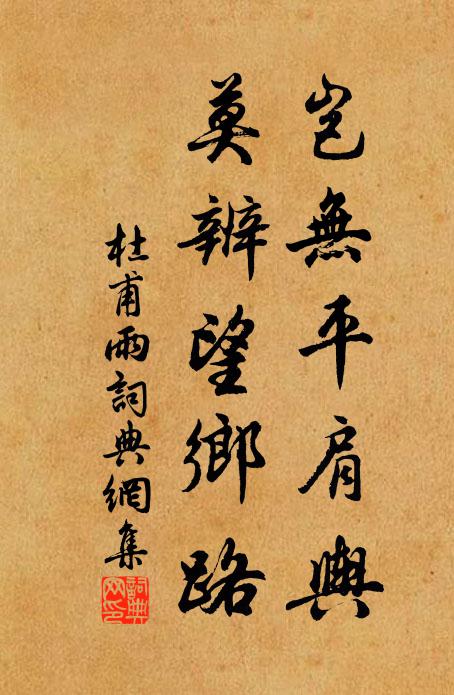 豈無平肩輿
莫辨望鄉路
杜甫雨詞典網集
詞典
网印